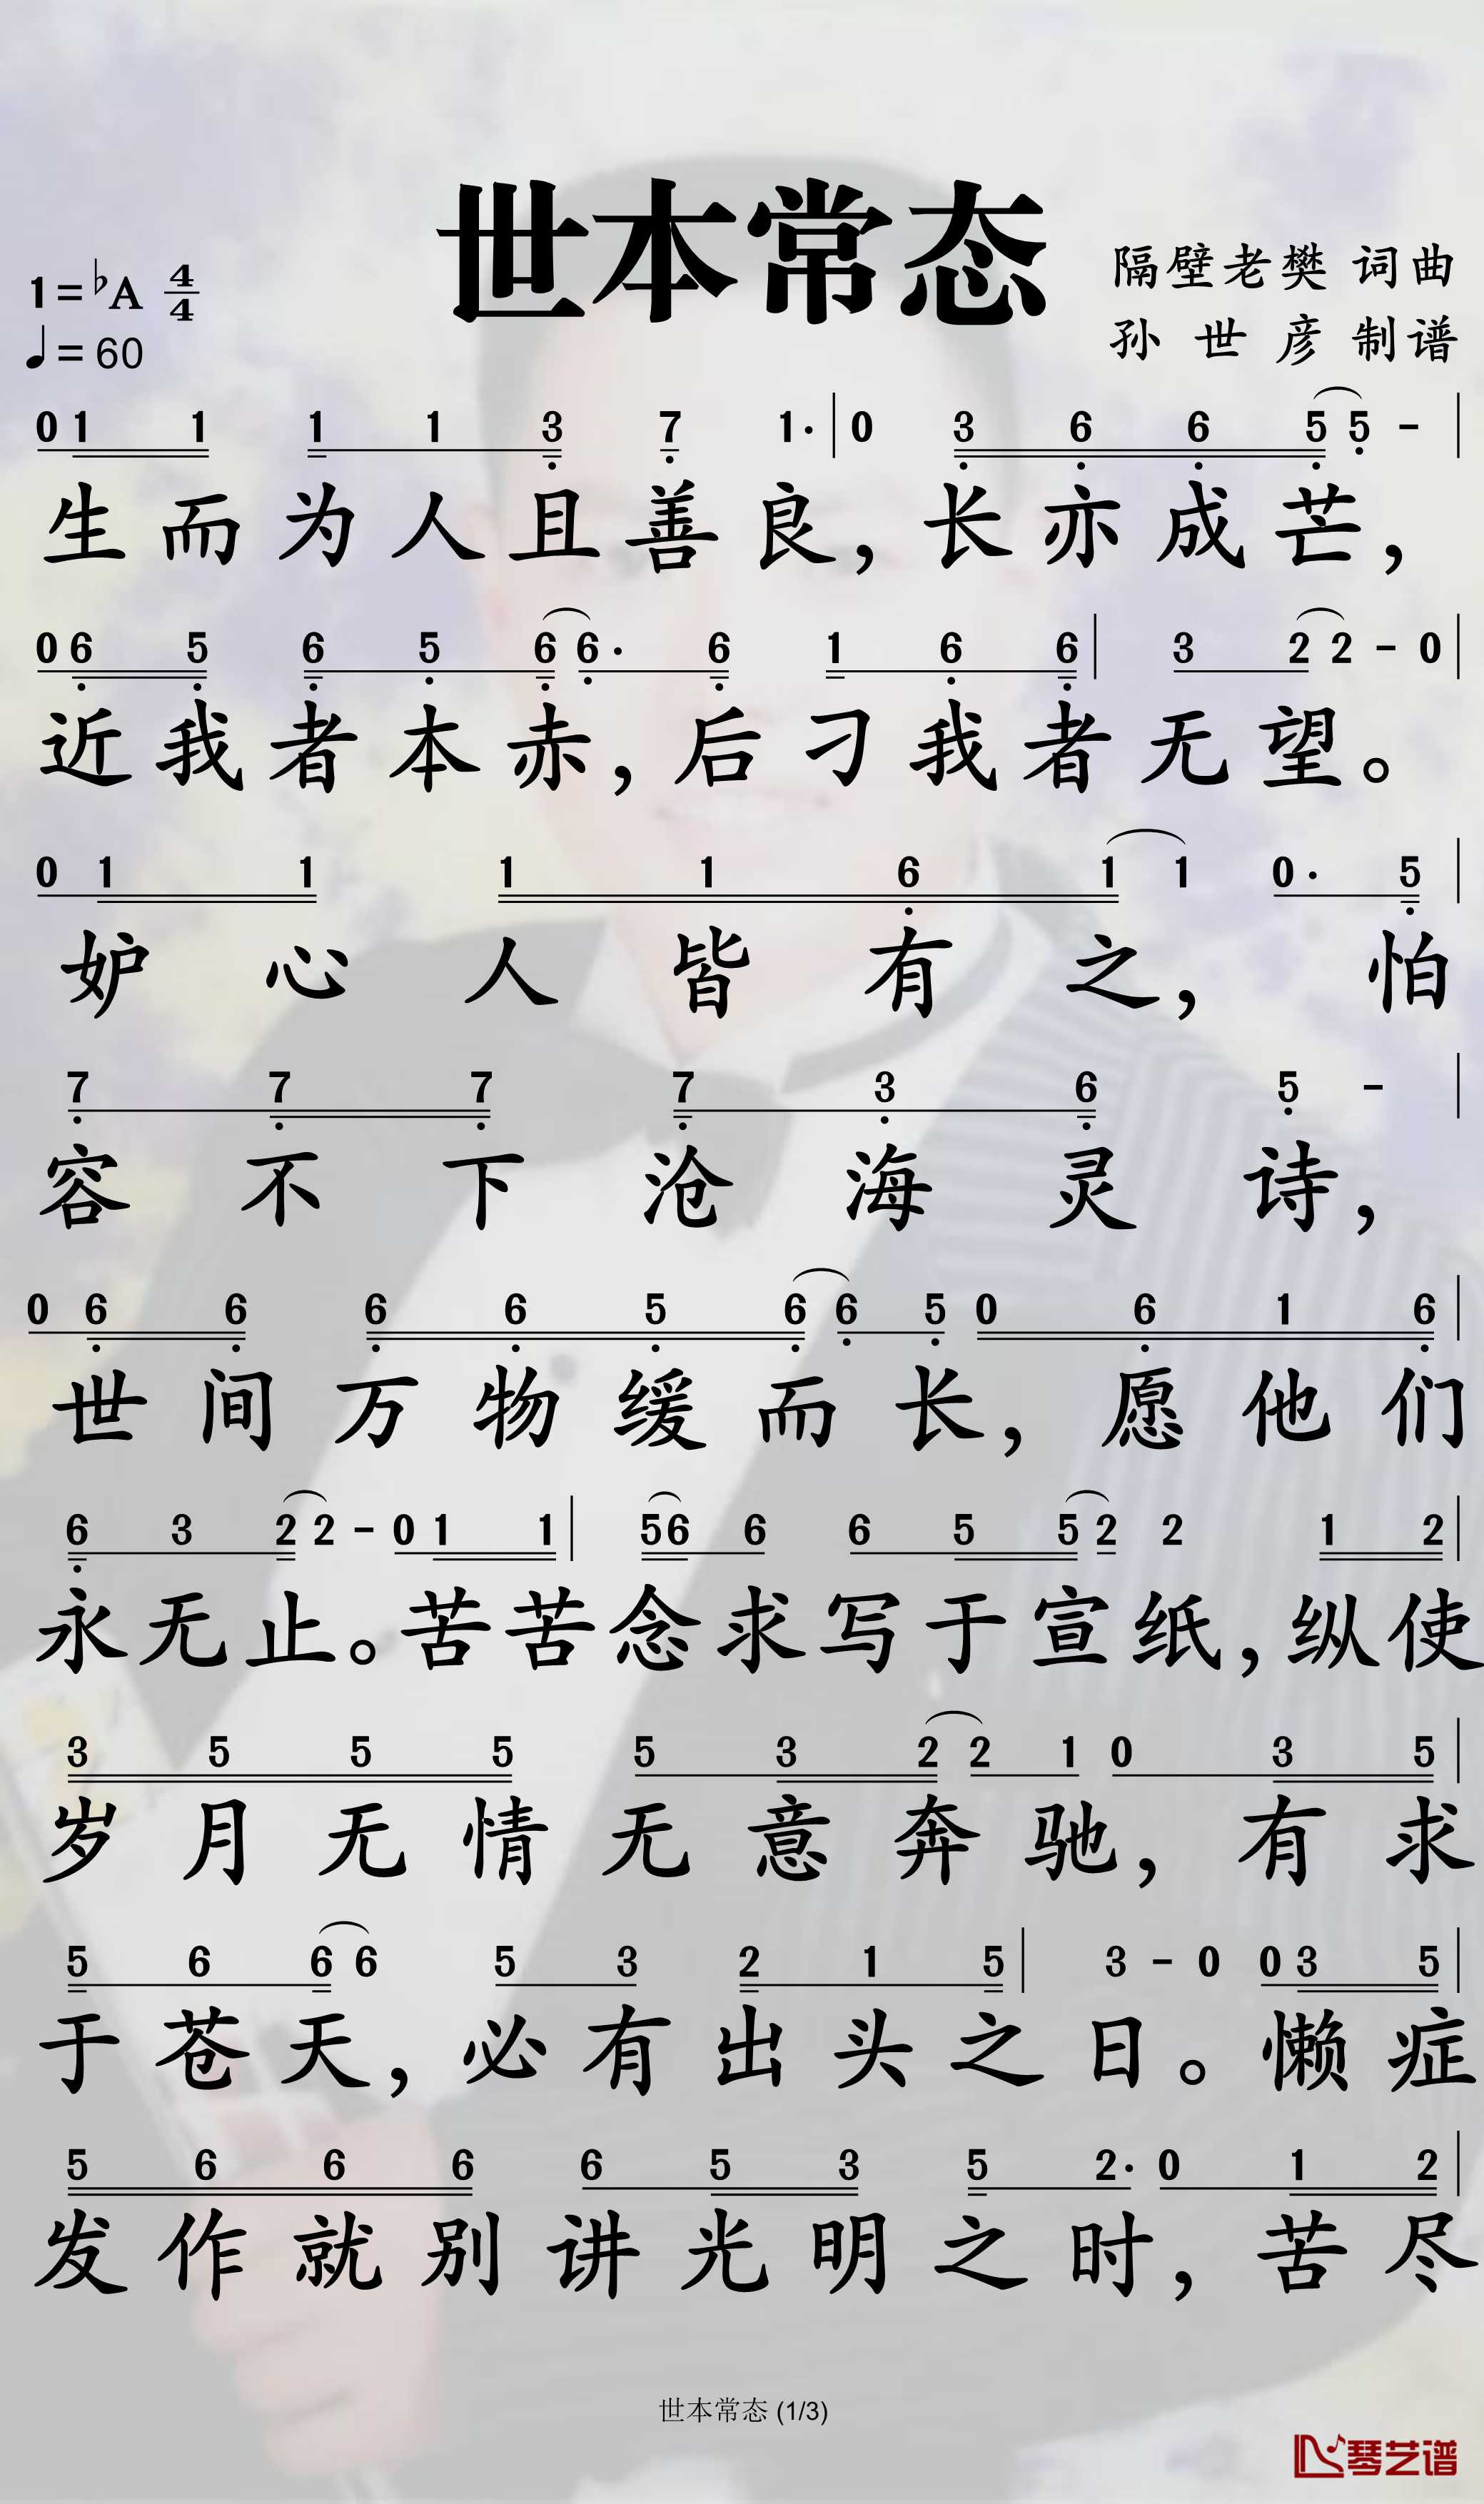 世本常态
1=♭A 4/4
隔壁老樊 词曲
♩=60
孙世彦制谱
0 1 1 1 1 3 7 1· | 0 3 6 6 5 5 - |
生而为人且善良，长亦成芒，
0 6 5 6 5 6 6· 6 1 6 6 | 3 2 2 - 0 |
近我者本赤，后刁我者无望。
0 1 1 1 1 6 1 1 0· 5 |
妒心人皆有之，怕
7 7 7 7 3 6 5 - |
容不下沧海灵诗，
0 6 6 6 6 5 6 6 5 0 6 1 6 |
世间万物缓而长，愿他们
6 3 2 2 - 0 1 1 | 5 6 6 6 5 5 2 2 1 2 |
永无止。苦苦念求写于宣纸，纵使
3 5 5 5 5 3 2 2 1 0 3 5 |
岁月无情无意奔驰，有求
5 6 6 6 5 3 2 1 5 | 3 - 0 0 3 5 |
于苍天，必有出头之日。懒症
5 6 6 6 6 5 3 5 2· 0 1 2 |
发作就别讲光明之时，苦尽
世本常态 (1/3)
琴艺谱